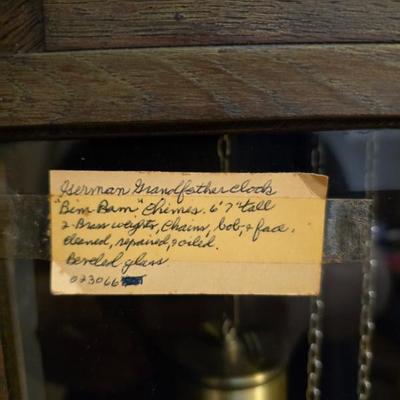 German Grandfather clock
"Bim Bam" Chimes. 6'7" tall
2-Brass weights, Chains, bob, & face.
cleaned, repaired, & oiled.
Beveled glass
023066